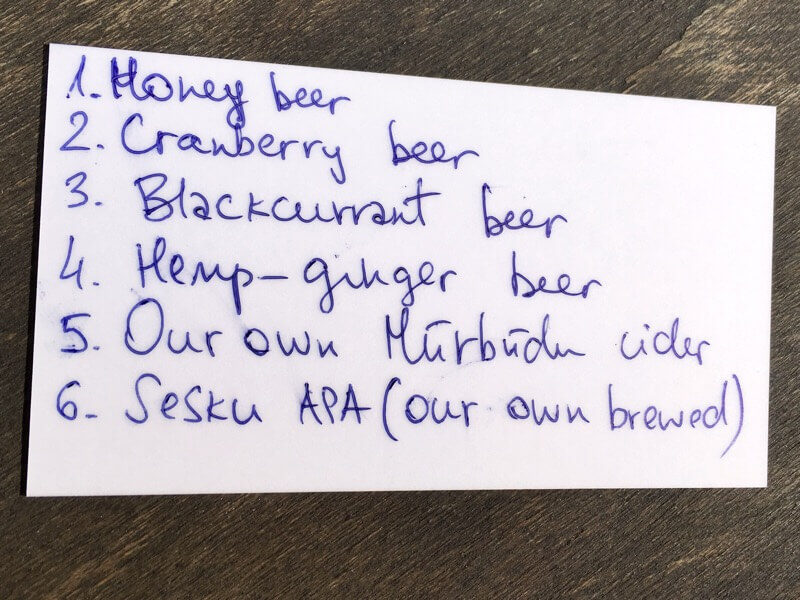 1. Honey beer
2. Cranberry beer
3. Blackcurrant beer
4. Hemp-ginger beer
5. Our own Mūrbūdu cider
6. Sesku APA (our own brewed)